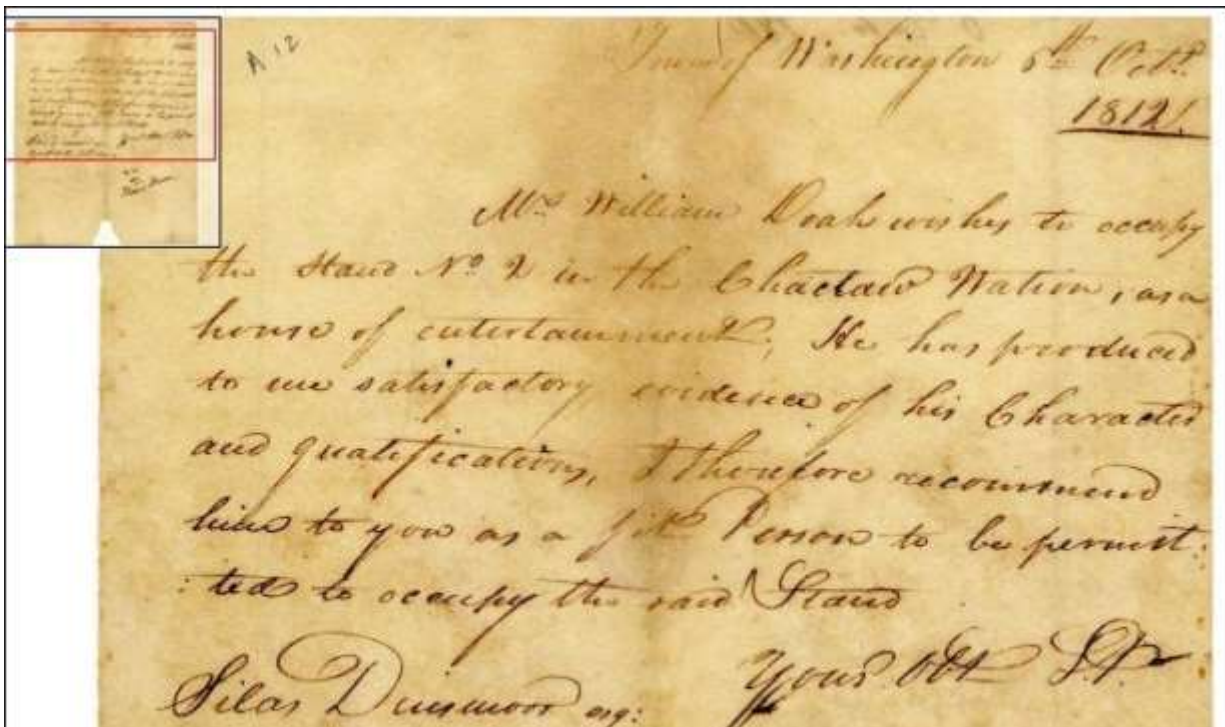 A 12
Town of Washington 5th Octr
1812.
Mr William Doak wishes to occupy
the Stand No 2 in the Chactaw Nation, as a
house of entertainment; He has produced
to me satisfactory evidence of his Character
and qualifications, I therefore recommend
him to you as a fit Person to be permit
:ted to occupy the said Stand
Yours Obt St
Silas Dinsmoor esq: